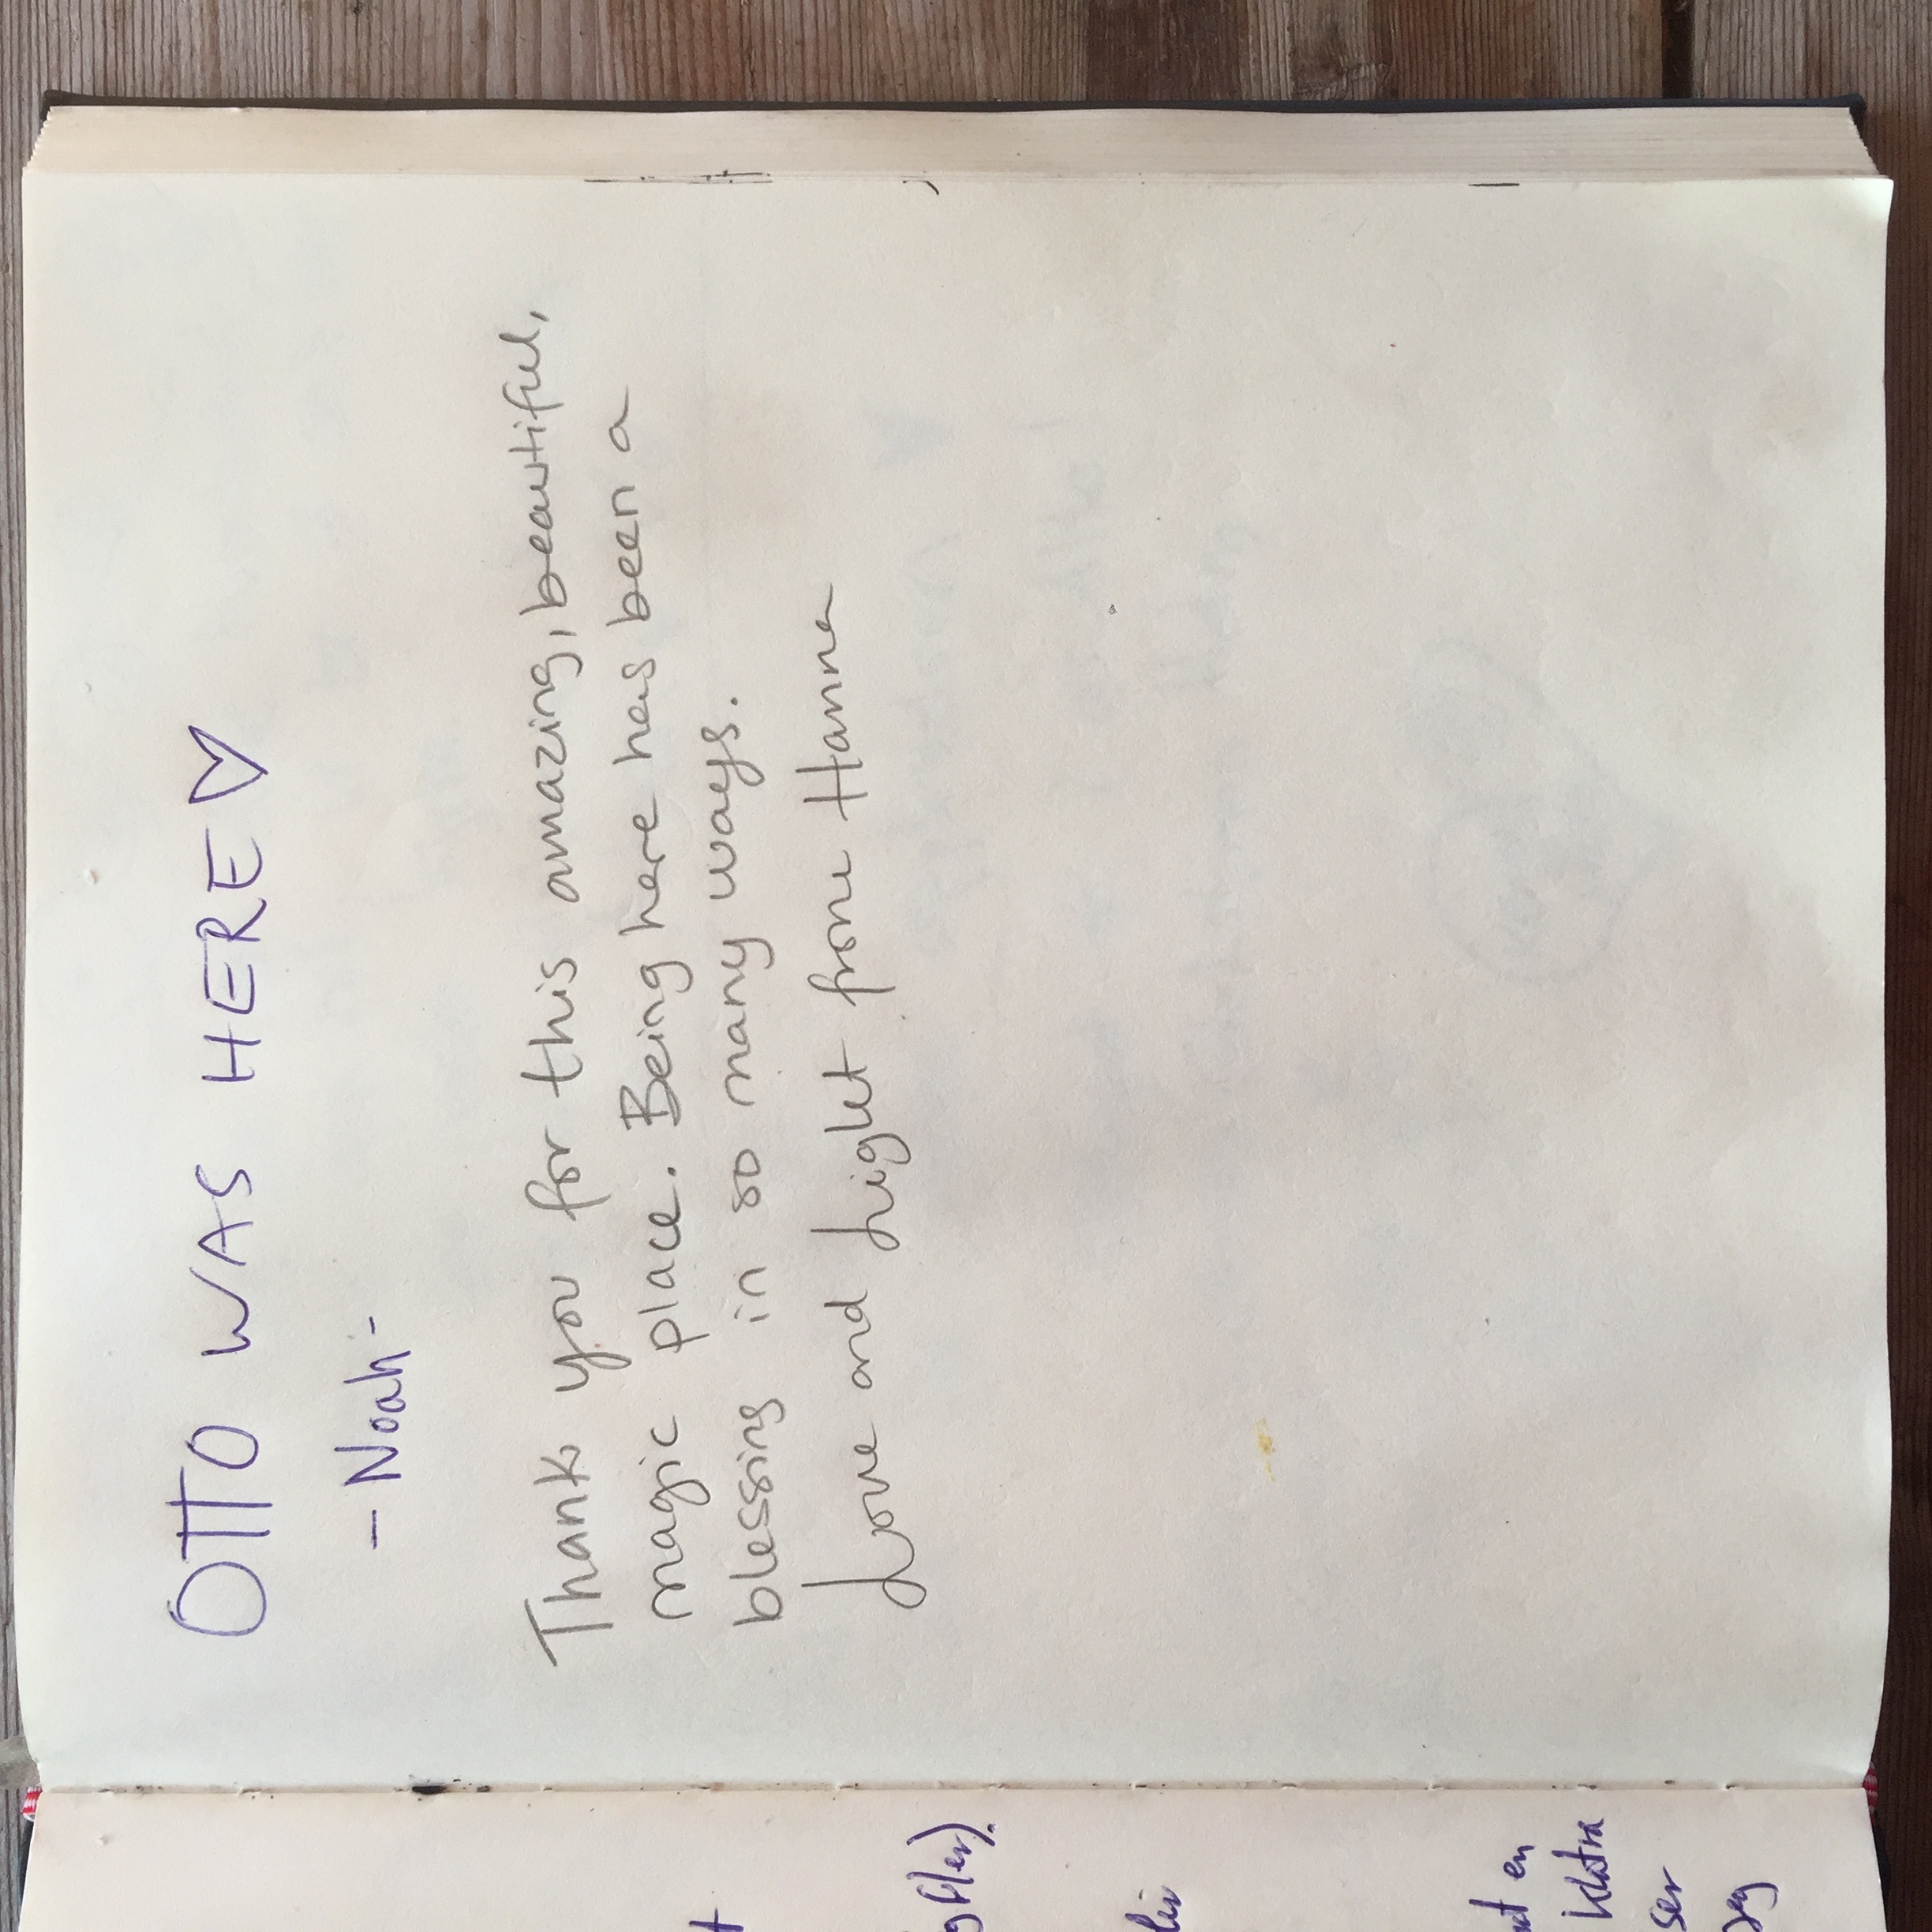 OTTO WAS HERE ♡
- Noah -
Thank you for this amazing, beautiful,
magic place. Being here has been a
blessing in so many ways.
Love and Light from Hanne
ut en
ser